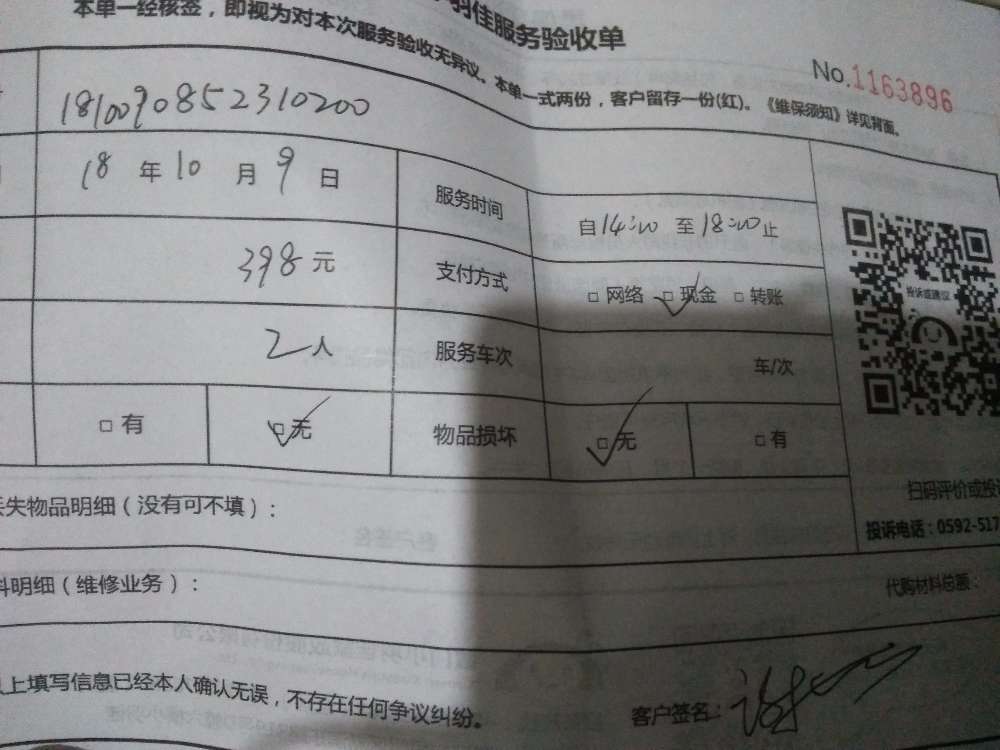 羽佳服务验收单
本单一经核签，即视为对本次服务验收无异议。本单一式两份，客户留存一份(红)。《维保须知》详见背面。
No.1163896
1810090852310200
18 年 10 月 9 日
服务时间
自14:00 至18:00止
398元
支付方式
□ 网络 □ 现金 □ 转账
2人
服务车次
车/次
□ 有
□ 无
物品损坏
□ 无
□ 有
投诉或建议
扫码评价或投
投诉电话：0592-517
失物品明细（没有可不填）：
料明细（维修业务）：
代购材料总额：
上填写信息已经本人确认无误，不存在任何争议纠纷。
客户签名：